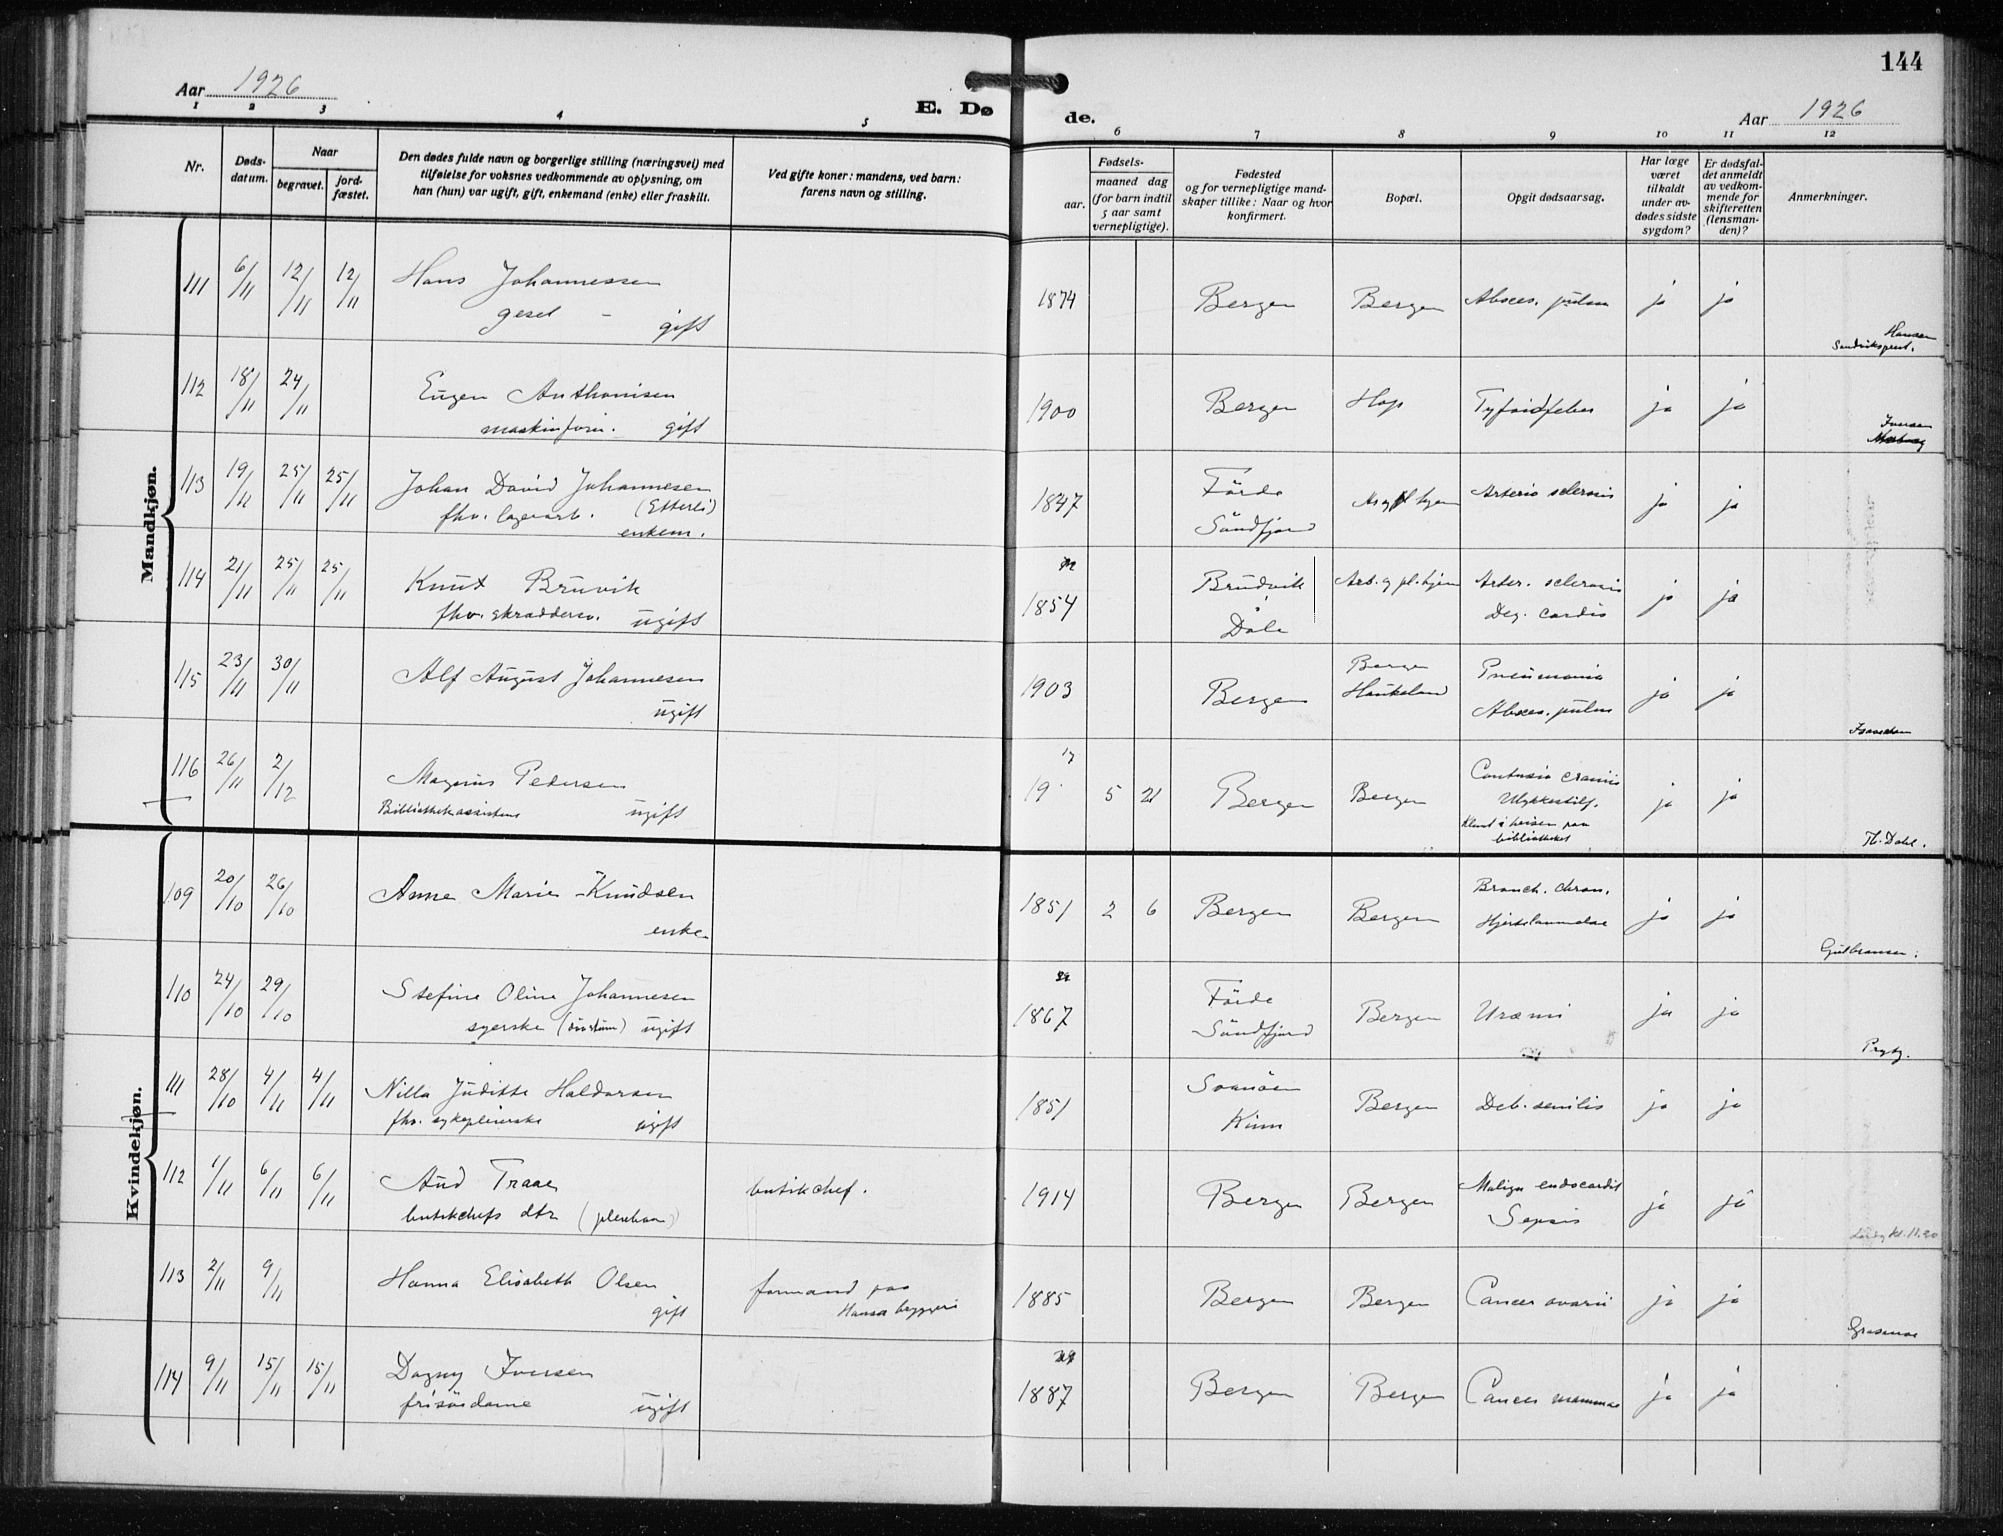 144
Aar 1926
E. Døde.
Aar 1926
1 2 3 4 5 6 7 8 9 10 11 12
Nr.
Dødsdatum.
Naar
begravet.
jordfæstet.
Den dødes fulde navn og borgerlige stilling (næringsvei) med
tilføielse for voksnes vedkommende av oplysning, om
han (hun) var ugift, gift, enkemand (enke) eller fraskilt.
Ved gifte koner: mandens, ved barn:
farens navn og stilling.
Fødsels-
aar.
maaned dag
(for barn indtil
5 aar samt
vernepligtige).
Fødested
og for vernepligtige mand-
skaper tillike: Naar og hvor
konfirmert.
Bopæl.
Opgit dødsaarsag.
Har læge
været
tilkaldt
under av-
dødes sidste
sygdom?
Er dødsfal-
det anmeldt
av vedkom-
mende for
skifteretten
(lensman-
den)?
Anmerkninger.
Mandkjøn.
111 6/11 12/11 12/11 Hans Johannessen 1874 Bergen Bergen Absces. pulm ja ja
gesel - gift
Hansen
Sandvikspræst.
112 18/11 24/11 Eugen Anthonisen 1900 Bergen Hop Tyfoidfeber ja ja
maskinform. gift
Iversen
113 19/11 25/11 25/11 Johan David Johannesen 1847 Förde Arterio sclerosis ja ja
fhv. lagerarb. (Etterli) Söndfjord
enkem.
114 21/11 25/11 25/11 Knut Bruvik 1854 Brudvik Arb. og pl.hjem Arter. sclerosis ja ja
fhv. skræddersv. ugift Dale Deg. cordis
115 23/11 30/11 Alf August Johannesen 1903 Bergen Bergen Pneumonia ja ja
ugift Haukeland Absces. pulm
Isaachsen
116 26/11 2/12 Magnus Pedersen 19 17 5 21 Bergen Bergen Contusio cranii ja ja
Bibliothekassistent ugift Ulykkestilf.
Klemt i heisen paa
bibliotheket
Th. Dahl.
Kvindekjøn.
109 20/10 26/10 Anne Marie Knudsen 1851 2 6 Bergen Bergen Bronch. chron. ja ja
enke Hjertelammelse
Gulbransen.
110 24/10 29/10 Stefine Oline Johannesen 1867 Förde Bergen Uræmi ja ja
syerske (døvstum) ugift Söndfjord
Prytz.
111 28/10 4/11 4/11 Nilla Juditte Haldorsen 1851 Svanöen Bergen Deb. senilis ja ja
fhv. sykepleierske ugift Kinn
112 1/11 6/11 6/11 Aud Traae butikchef. 1914 Bergen Bergen Malign endocardit ja ja
butikchefs dtr (plexbarn) Sepsis
Lördg kl. 11.30
113 2/11 9/11 Hanna Elisabeth Olsen formand paa 1885 Bergen Bergen Cancer ovarii ja ja
gift Hansa bryggeri
114 9/11 15/11 15/11 Dagny Iversen 1887 Bergen Bergen Cancer mammae ja ja
frisördame ugift